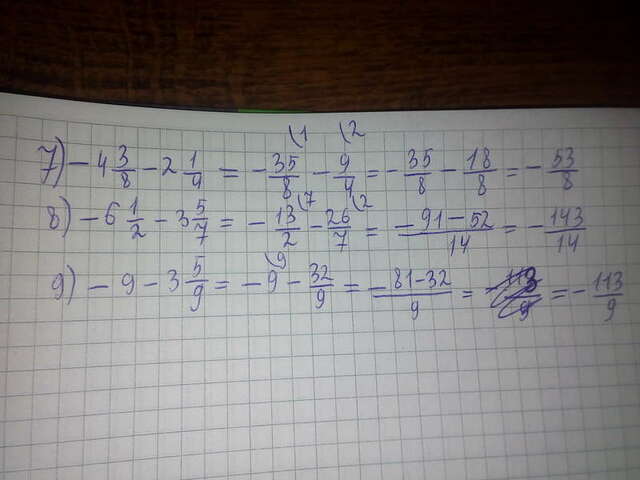 7) -4 3/8 - 2 1/4 = -35/8 \1 - 9/4 \2 = -35/8 - 18/8 = -53/8
8) -6 1/2 - 3 5/7 = -13/2 \7 - 26/7 \2 = (-91-52)/14 = -143/14
9) -9 - 3 5/9 = -9 \9 - 32/9 = (-81-32)/9 = = -113/9